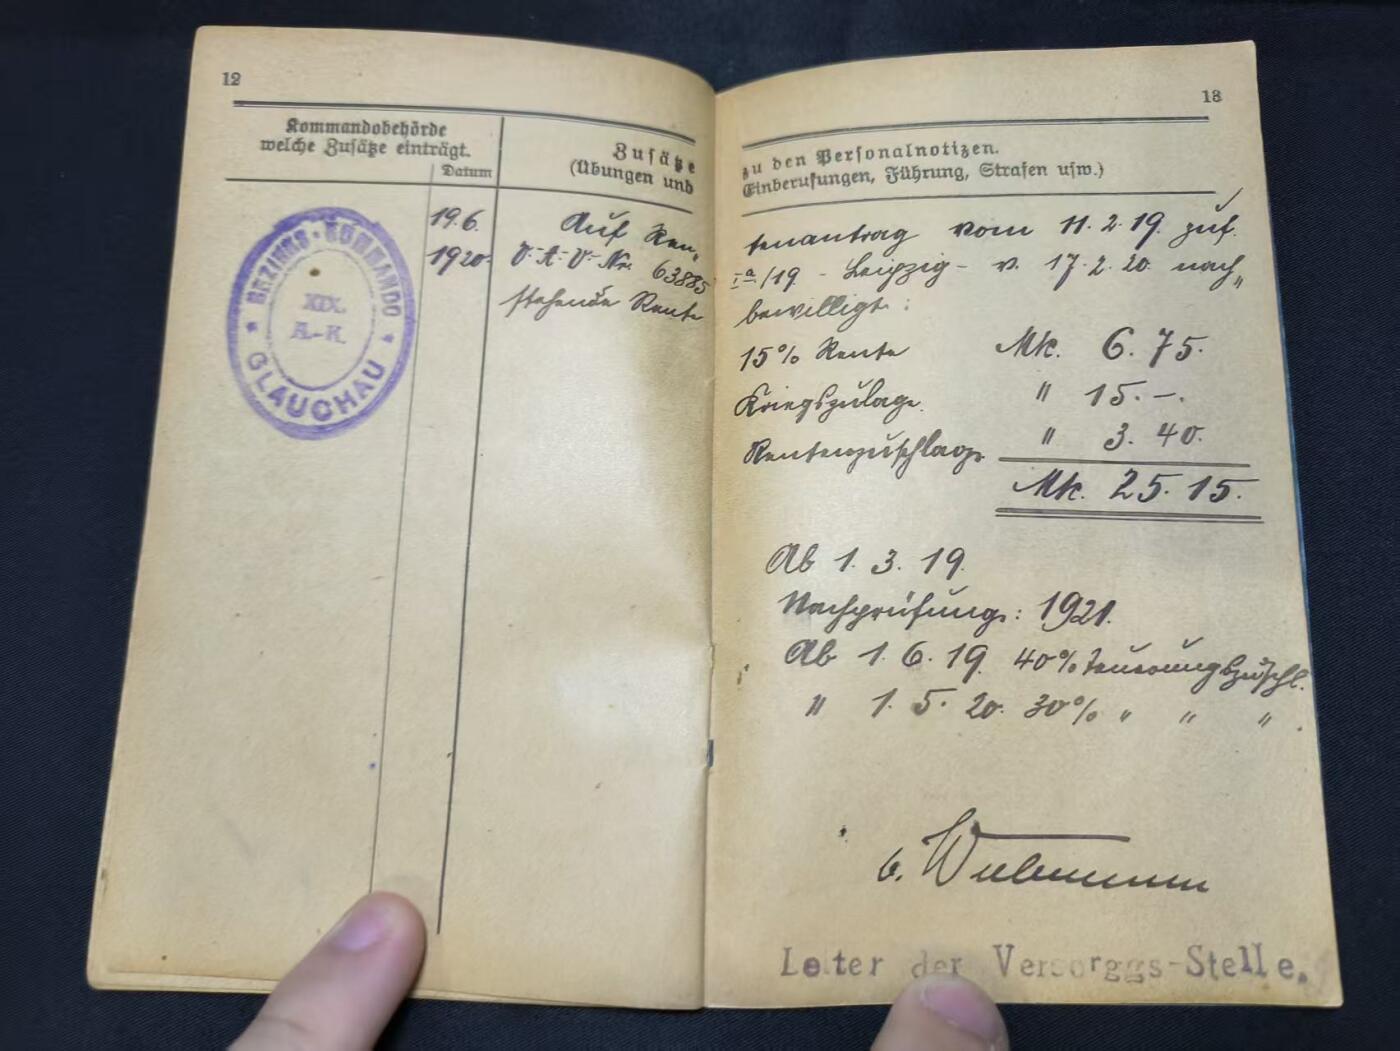 12
Kommandobehörde
welche Zusätze einträgt.
Datum
Zusätze
(Übungen und
BEZIRKS-KOMMANDO
XIX.
A.-K.
GLAUCHAU
19.6.
1920.
Auf Ren„
V.-A.-V.-Nr. 63885
stehende Rente
13
zu den Personalnotizen.
Einberufungen, Führung, Strafen usw.)
tenantrag vom 11.2.19. zuf.
Iª/19 - Leipzig - v. 17.2.20. nach„
bewilligt:
15% Rente Mk. 6.75.
Kriegszulage. " 15.-.
Rentenzuschlag. " 3.40.
Mk. 25.15.
Ab 1.3.19.
Nachprüfung: 1921.
Ab 1.6.19. 40% Teuerungszuschl.
" 1.5.20. 30% " " "
Leiter der Versorggs-Stelle.